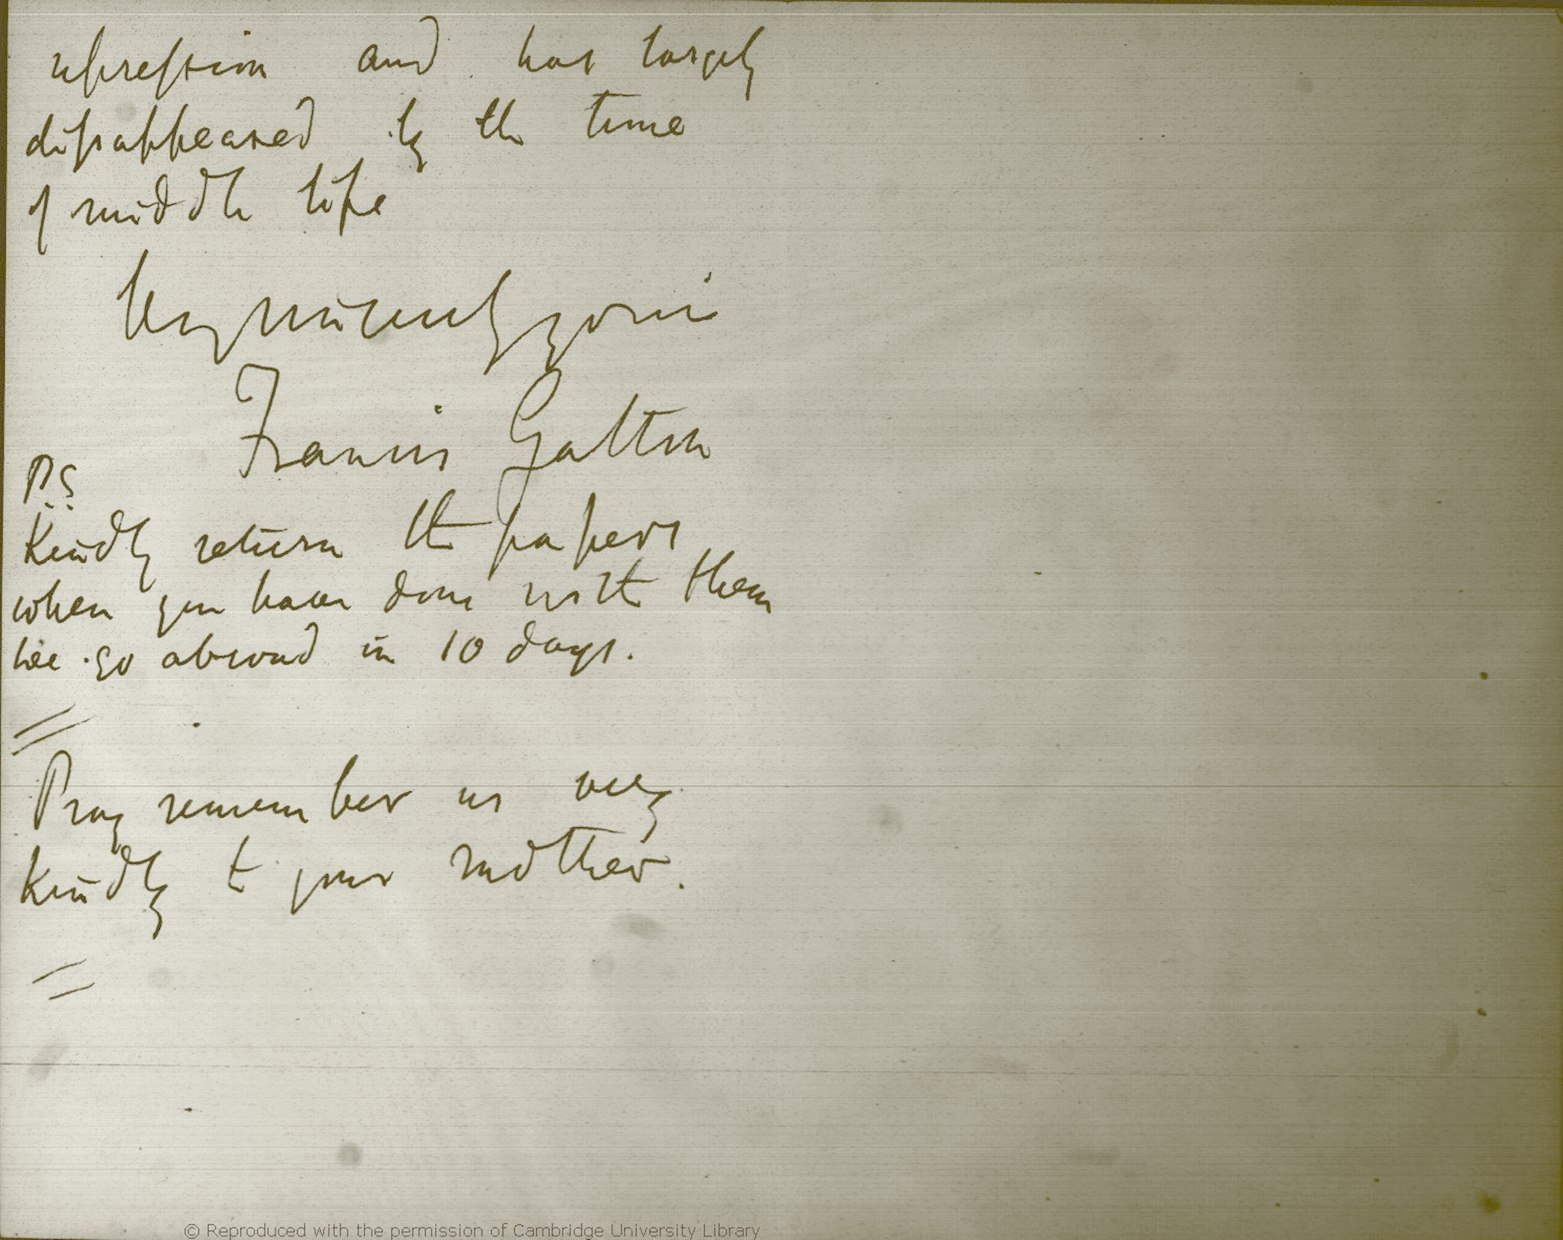 repression and has largely
disappeared by the time
of middle life
Very sincerely yours
Francis Galton
PS
Kindly return the papers
when you have done with them
We go abroad in 10 days.
Pray remember us very
Kindly to your mother.
© Reproduced with the permission of Cambridge University Library